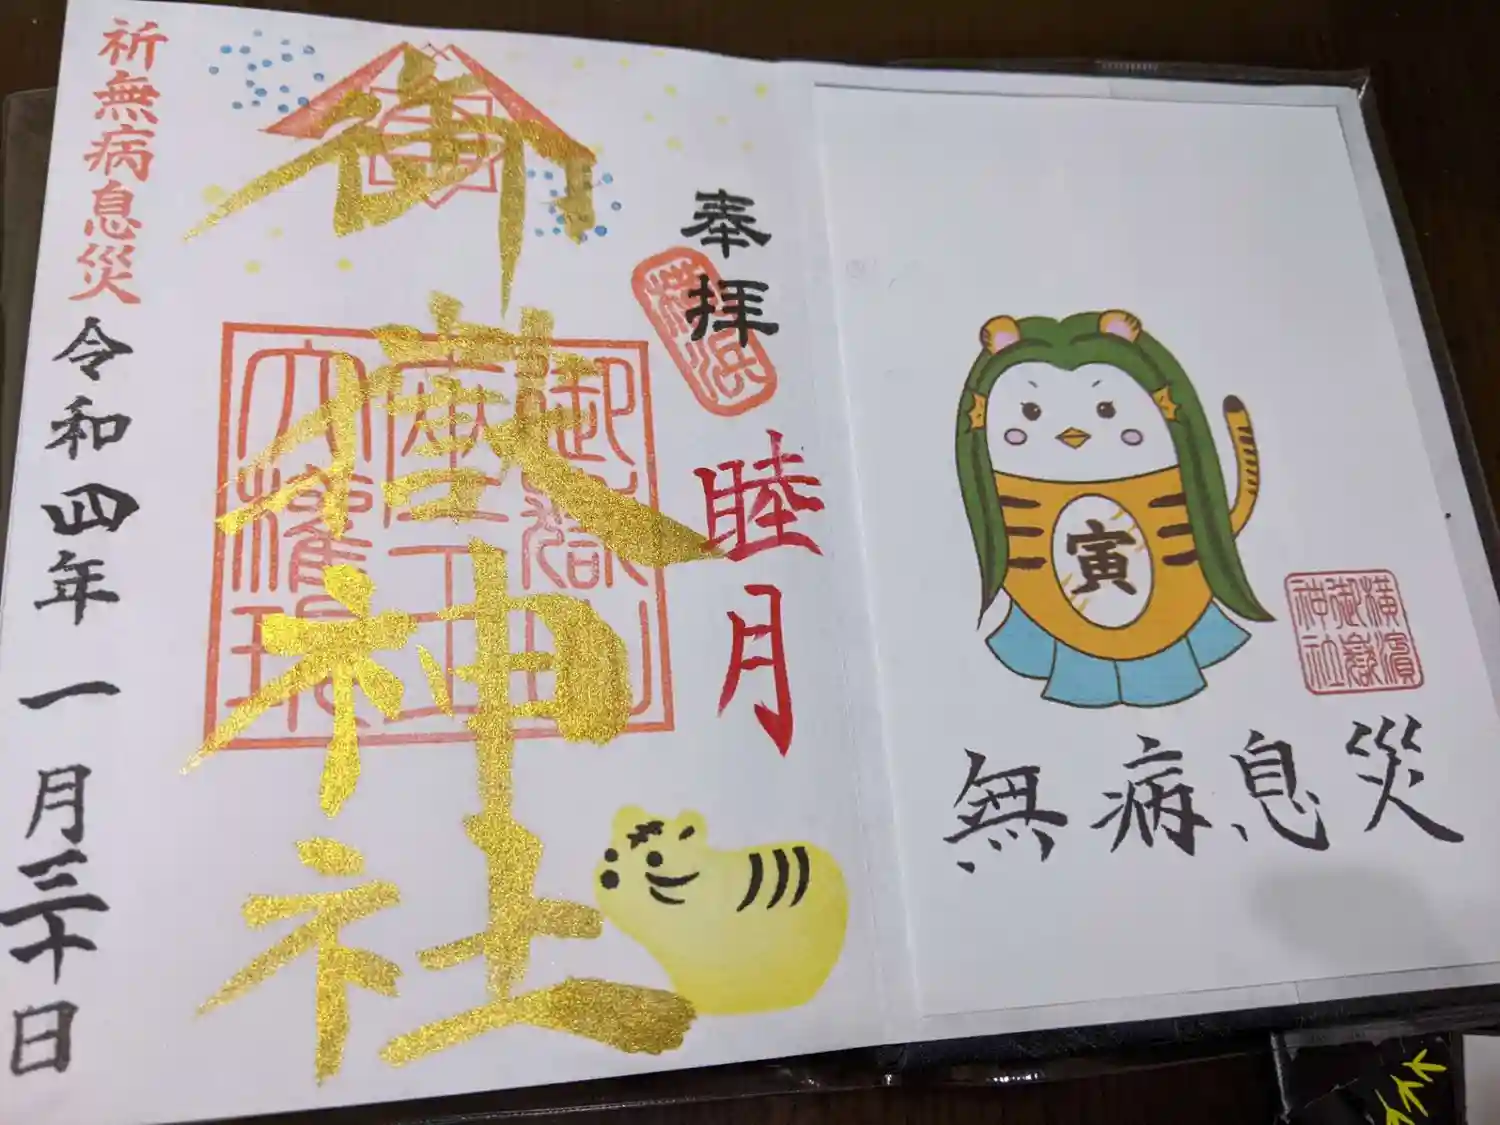 奉拝
横浜
睦月
御嶽神社
御嶽山
座王
大権現
祈無病息災
令和四年一月三十日
寅
横濱
御嶽
神社
無病息災